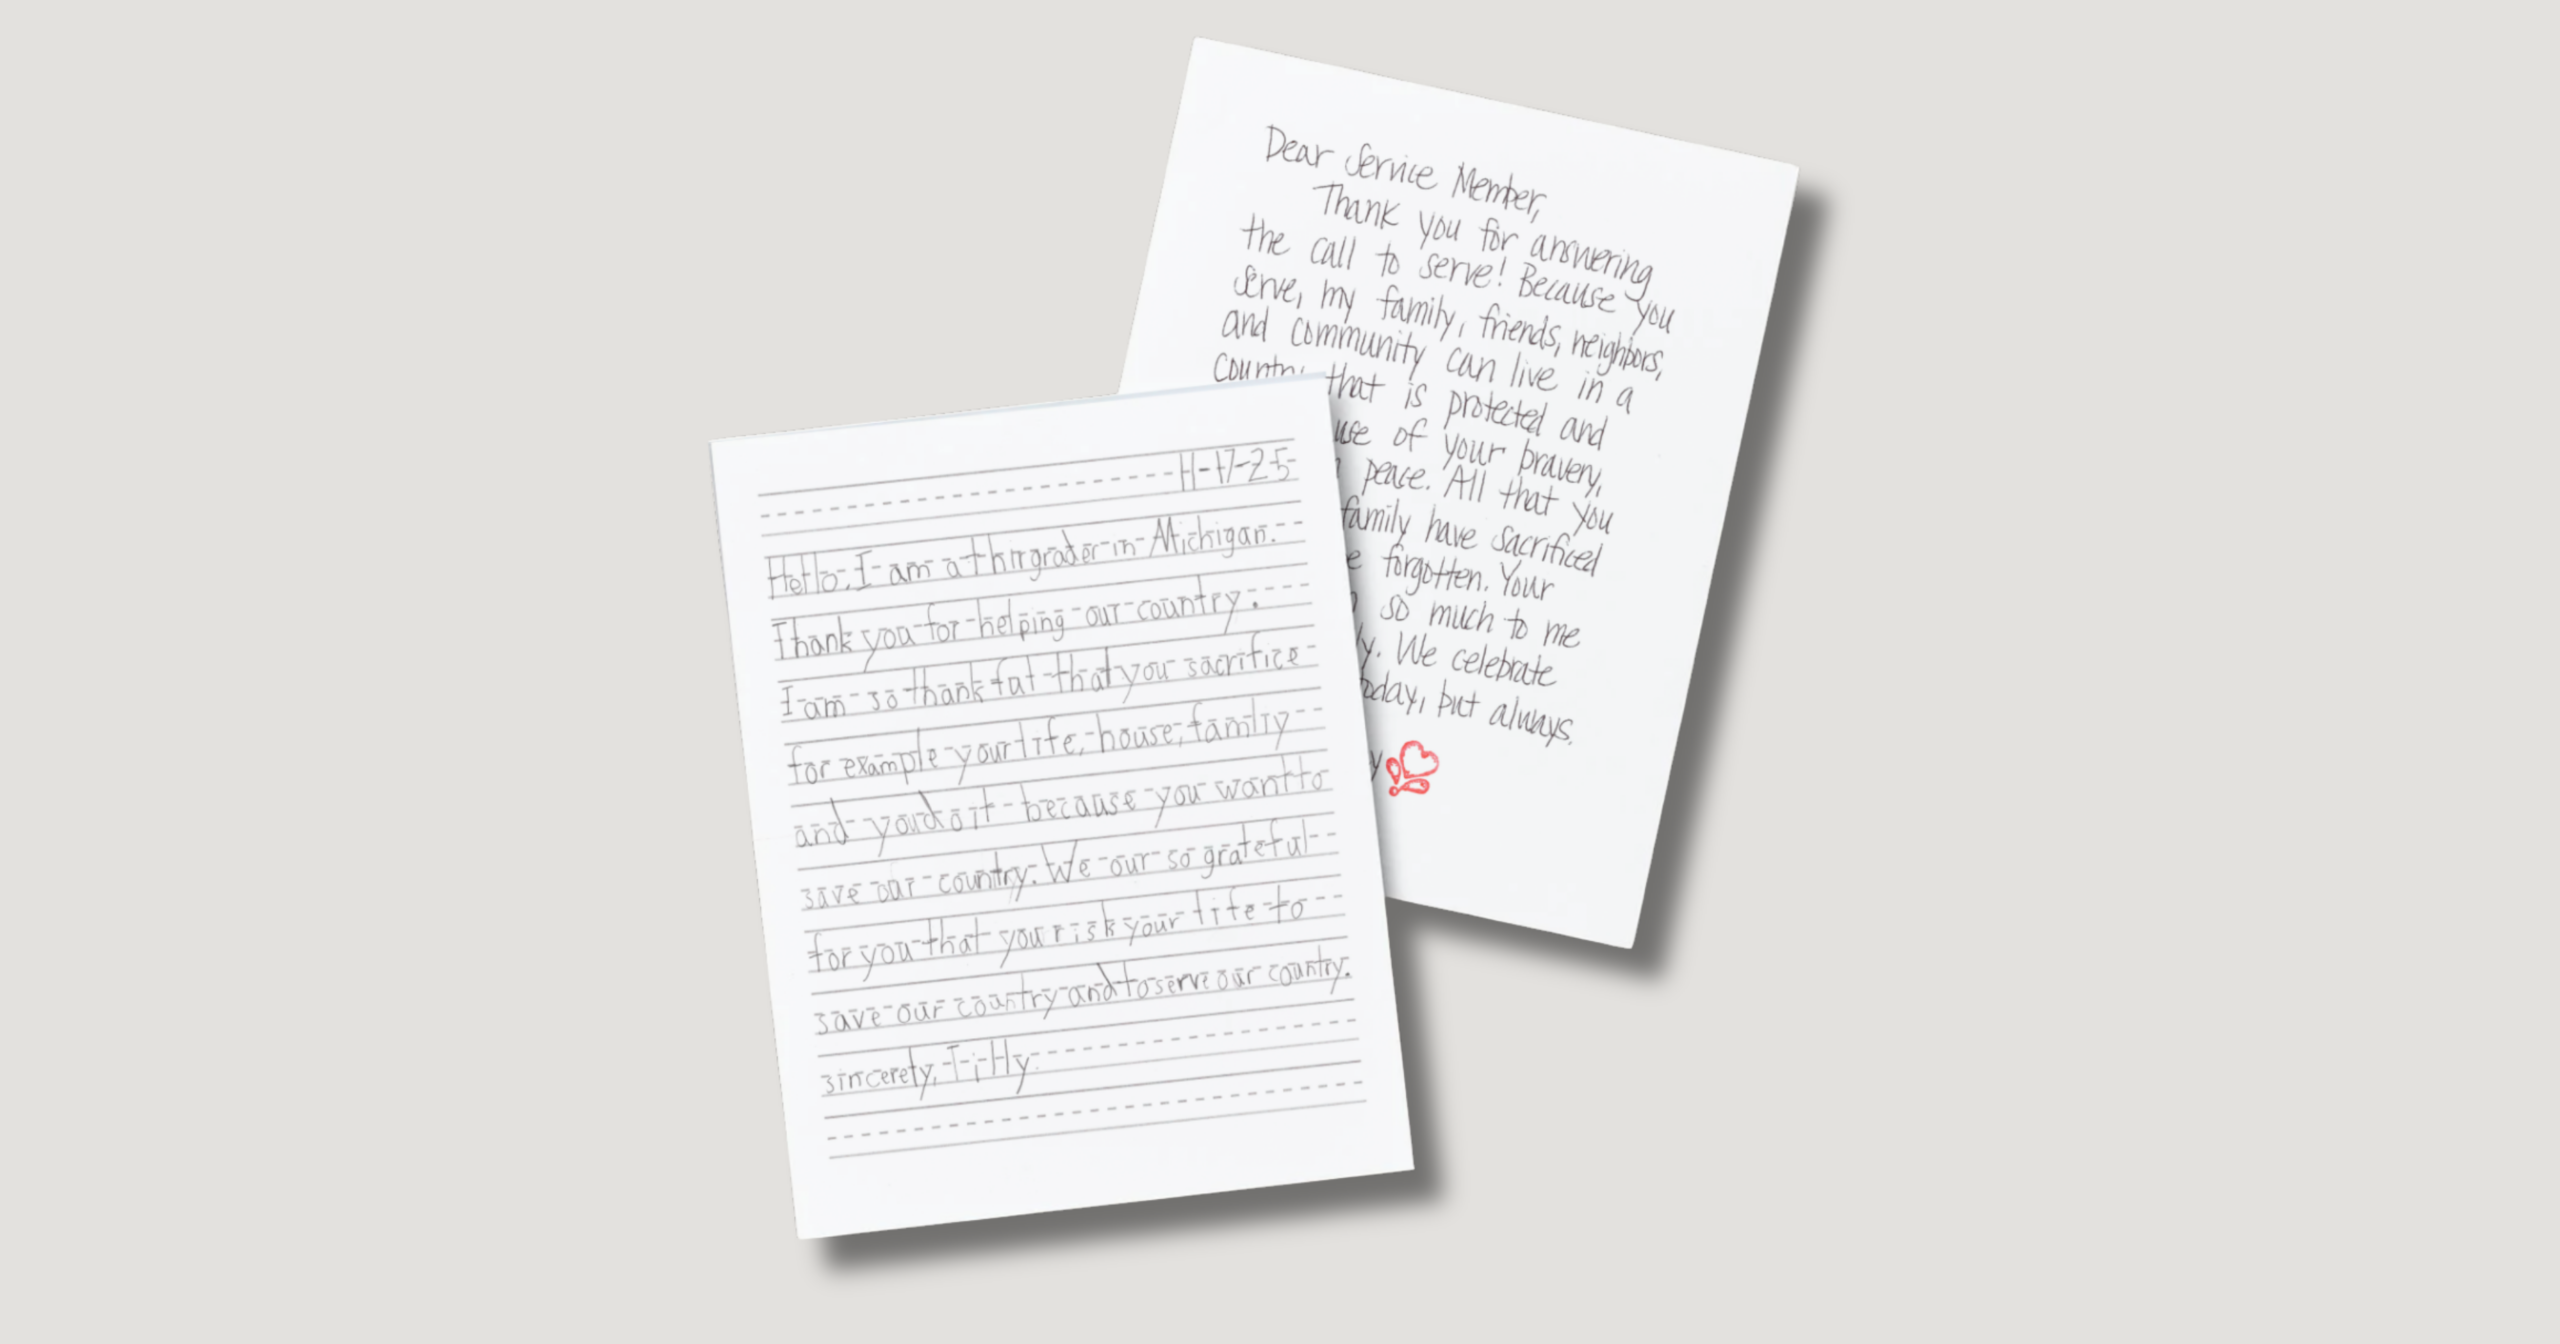 Dear Service Member,
Thank you for answering
the call to serve! Because you
serve, my family, friends, neighbors,
and community can live in a
country that is protected and
use of your bravery,
peace. All that you
family have sacrificed
e forgotten. Your
so much to me
ly. We celebrate
today, but always.
y
11-17-25
Hello, I am a thir grader in Michigan.
Thank you for helping our country.
I am so thankful that you sacrifice
for example your life, house, family
and you do it because you want to
save our country. We our so grateful
for you that you risk your life to
save our country and to serve our country.
sincerely, Tilly